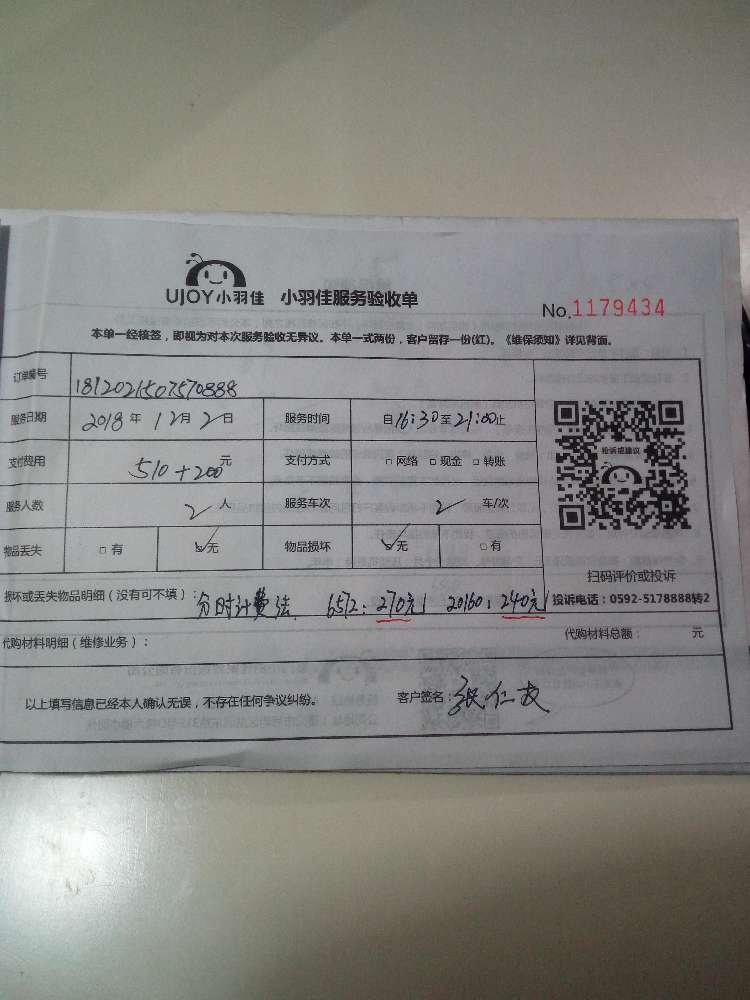 UJOY小羽佳 小羽佳服务验收单
No.1179434
本单一经核签，即视为对本次服务验收无异议。本单一式两份，客户留存一份(红)。《维保须知》详见背面。
订单编号 1812021507570888
服务日期 2018年12月2日 服务时间 自16:30至21:00止
投诉或建议
支付费用 510+200元 支付方式 □网络 □现金 □转账
服务人数 2人 服务车次 2车/次
物品丢失 □有 ☑无 物品损坏 ☑无 □有
扫码评价或投诉
损坏或丢失物品明细（没有可不填）：分时计费法 6512：270元 20160：240元
投诉电话：0592-5178888转2
代购材料明细（维修业务）： 代购材料总额： 元
以上填写信息已经本人确认无误，不存在任何争议纠纷。 客户签名：张仁友